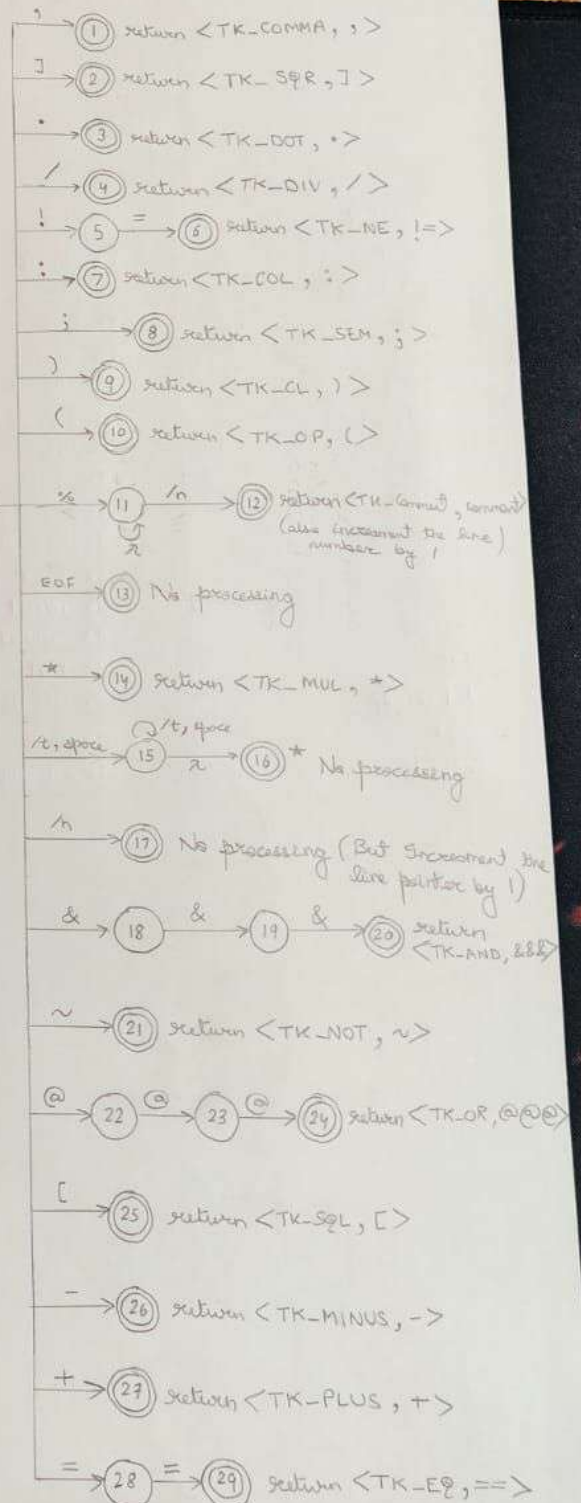 , 1 return <TK_COMMA, ,>
] 2 return <TK_SQR, ]>
. 3 return <TK_DOT, .>
/ 4 return <TK_DIV, />
! 5 = 6 return <TK_NE, !=>
: 7 return <TK_COL, :>
; 8 return <TK_SEM, ;>
) 9 return <TK_CL, )>
( 10 return <TK_OP, (>
% 11 /n 12 return <TK_Comment, comment>
(also increment the line)
λ number by 1
EOF 13 No processing
* 14 return <TK_MUL, *>
/t, space
/t, space 15 λ 16 * No processing
/n 17 No processing (But Increament the
line pointer by 1)
& 18 & 19 & 20 return
<TK_AND, &&&>
~ 21 return <TK_NOT, ~>
@ 22 @ 23 @ 24 return <TK_OR, @@@>
[ 25 return <TK_SQL, [>
- 26 return <TK_MINUS, ->
+ 27 return <TK_PLUS, +>
= 28 = 29 return <TK_EQ, ==>